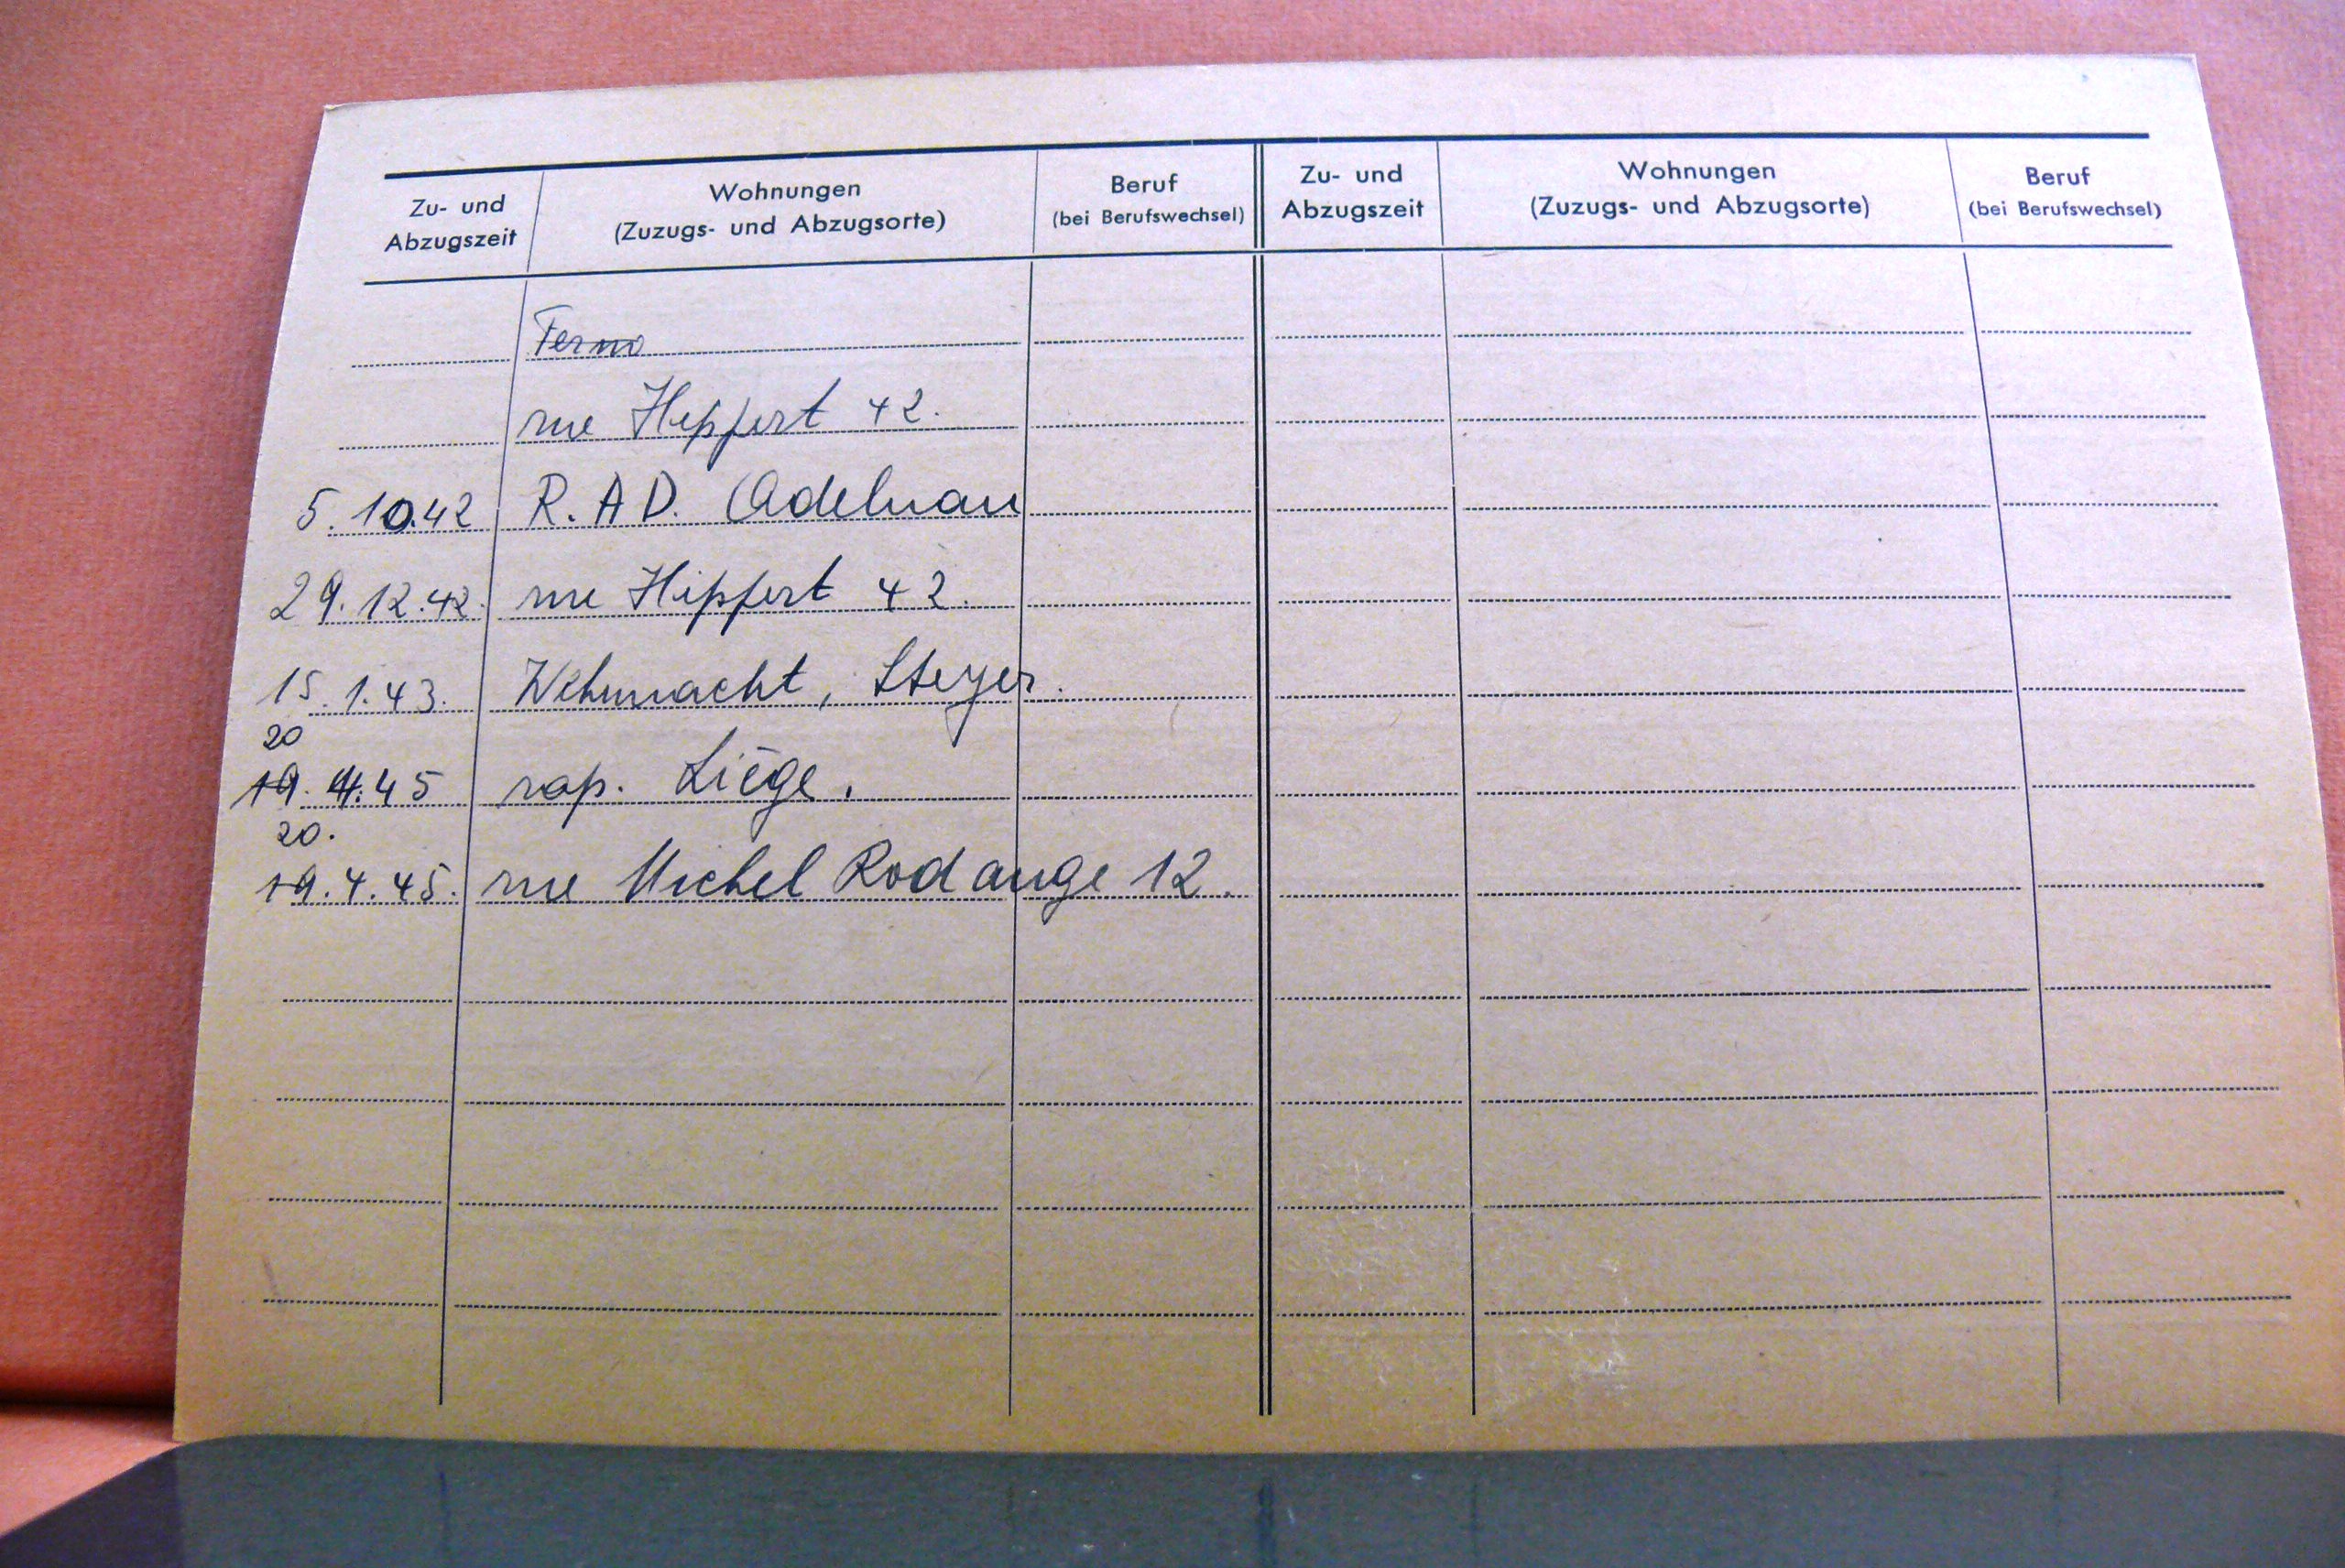 Zu- und Abzugszeit Wohnungen (Zuzugs- und Abzugsorte) Beruf (bei Berufswechsel) Zu- und Abzugszeit Wohnungen (Zuzugs- und Abzugsorte) Beruf (bei Berufswechsel)
rue Heppert 42.
5.10.42 R.AD. (Adelnau
29.12.42. rue Hippert 42.
15.1.43. Wehrmacht, Steyer.
20
19.4.45 rap. Liège.
20.
19.4.45. rue Michel Rodange 12.